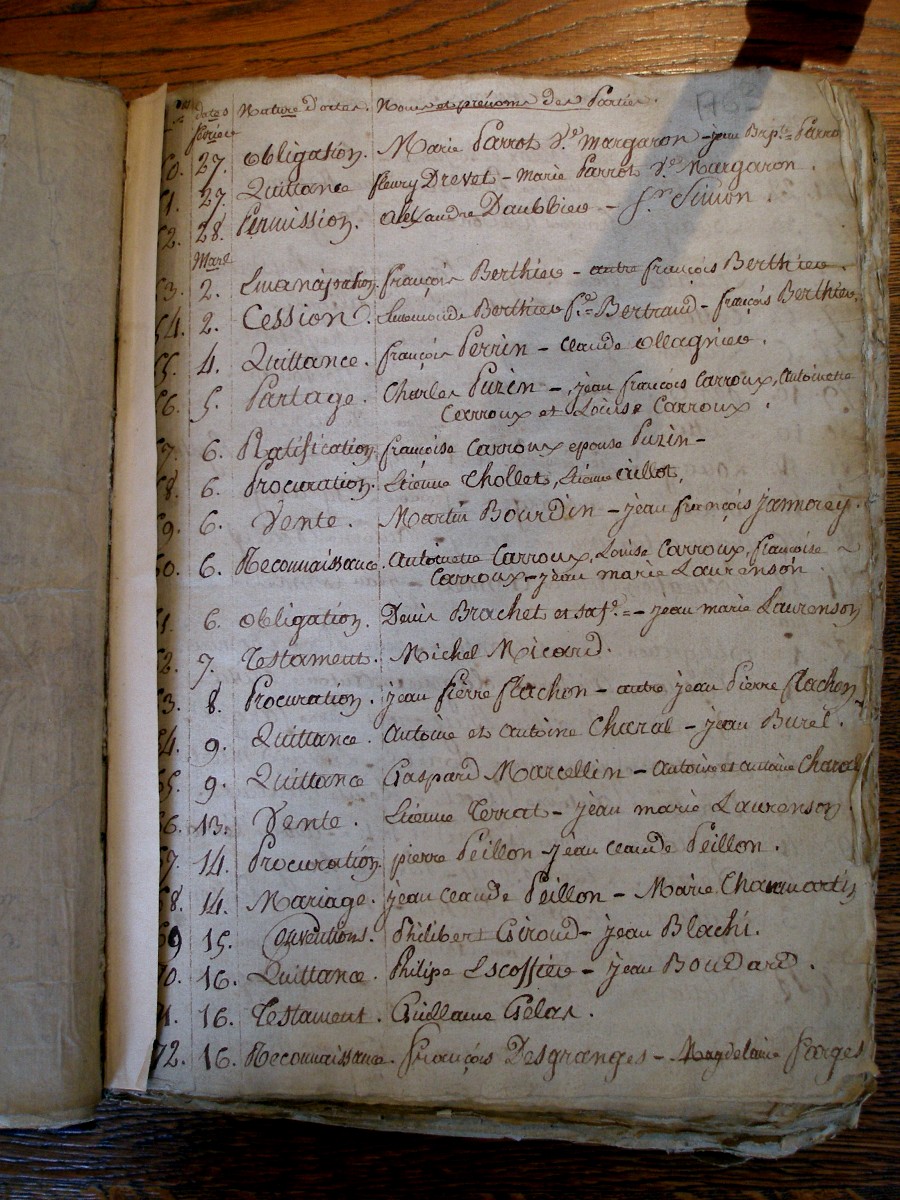 dates Nature d'actes. Noms et prénoms des Parties. 176
fevrier
50. 27. Obligation. Marie Parrot v.e Margaron - jean Bap.te Parro
51. 27. Quittance fleury Drevet - Marie Parrot v.e Margaron.
52. 28. Permission. Alexandre Daubbier - S.r Simon.
Mars
53. 2. Emancipation. françois Berthier - autre françois Berthier.
54. 2. Cession. Berthier f.e Bertrand - françois Berthier.
55. 4. Quittance. françois Perrin - Claude Ollagnier.
56. 5. Partage. Charles Puzin - jean françois Carroux, Antoinette
Carroux et Louise Carroux.
57. 6. Ratification. françoise Carroux epouse Puzin -
58. 6. Procuration. Etienne Thollet, Etienne Aillot.
59. 6. Vente. Martin Bourdin - jean françois jannorey.
60. 6. Reconnaissance. Antoinette Carroux, Louise Carroux, françoise
Carroux - jean marie Laurenson
61. 6. Obligation. Denis Brachet et sa f.e - jean marie Laurenson
62. 7. Testament. Michel Micard.
63. 8. Procuration. jean Pierre flachon - autre jean Pierre flachon
64. 9. Quittance. Antoine et antoine Charal - jean Burel.
65. 9. Quittance Gaspard Marcellin - Antoine et antoine Charal
66. 13. Vente. Etienne Terrat - jean marie Laurenson
67. 14. Procuration. pierre Peillon - jean claude Peillon.
68. 14. Mariage. jean claude Peillon - Marie Charmartin
69 15. Conventions. Philibert Giroud - jean Blachi.
70. 16. Quittance. Philipe Escoffier - jean Boudard.
71. 16. Testament. Guillaume Gelas.
72. 16. Reconnaissance. François Desgranges - Magdelaine Farges